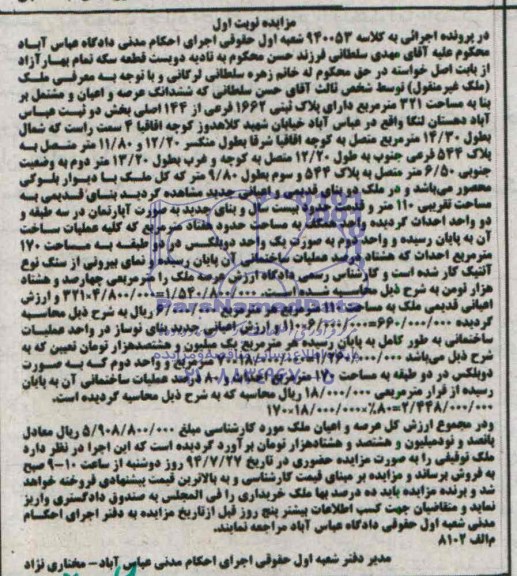 مزایده نوبت اول
در پرونده اجرائی به کلاسه ۹۴۰۰۵۳ شعبه اول حقوقی اجرای احکام مدنی دادگاه عباس آباد
محکوم علیه آقای مهدی سلطانی فرزند حسن محکوم به تادیه دویست قطعه سکه تمام بهار آزاد
از بابت اصل خواسته در حق محکوم له خانم زهره سلطانی لرگانی و با توجه به معرفی ملک
(ملک غیرمنقول) توسط شخص ثالث آقای حسن سلطانی که ششدانگ عرصه و اعیان و مشتمل بر
بنا به مساحت ۳۲۱ مترمربع دارای پلاک ثبتی ۱۶۶۲ فرعی از ۱۴۴ اصلی بخش دو ثبت عباس
آباد دهستان لنگا واقع در عباس آباد خیابان شهید کلاهدوز کوچه اقاقیا ۴ سمت راست که شمال
بطول ۱۴/۳۰ مترمربع متصل به کوچه اقاقیا شرقا بطول منکسر ۱۲/۲۰ و ۱۱/۸۰ متر متصل به
پلاک ۵۴۴ فرعی جنوب به طول ۱۲/۲۰ متصل به کوچه و غرب بطول ۱۳/۲۰ متر دوم به وضعیت
جنوبی ۶/۵۰ متر متصل به پلاک ۵۴۴ و سوم بطول ۹/۸۰ متر که کل ملک با دیوار بلوکی
محصور می‌باشد و در ملک دو بنای قدیمی و اعیانی جدید مشاهده گردید بنای قدیمی به
مساحت تقریبی ۱۱۰ متر و قدمت حدود بیست سال و بنای جدید به صورت آپارتمان در سه طبقه و
دو واحد احداث گردیده واحد همکف به مساحت حدود هفتاد مترمربع که کلیه عملیات ساخت
آن به پایان رسیده و واحد دوم به صورت یک واحد دوبلکس در دو طبقه به مساحت ۱۷۰
مترمربع احداث که هشتاد درصد عملیات ساختمانی آن پایان رسیده و نمای بیرونی از سنگ نوع
آنتیک کار شده است و کارشناس رسمی دادگاه ارزش عرصه ملک را مترمربعی چهارصد و هشتاد
هزار تومن به شرح ذیل محاسبه شده است. ۱/۵۴۰/۸۰۰/۰۰۰=۳۲۱*۴/۸۰۰/۰۰۰ و ارزش
اعیانی قدیمی ملک به مساحت ۱۱۰ مترمربع هر مترمربع ۶/۰۰۰/۰۰۰ ریال به شرح ذیل محاسبه
گردیده ۶۶۰/۰۰۰/۰۰۰=۶/۰۰۰/۰۰۰*۱۱۰ و ارزش اعیانی جدید بنای نوساز در واحد عملیات
ساختمانی به طور کامل به پایان رسیده هر مترمربع یک میلیون و هشتصدهزار تومان تعیین که به
شرح ذیل می‌باشد ۱/۲۶۰/۰۰۰/۰۰۰=۱۸/۰۰۰/۰۰۰*۷۰ و واحد دوم که به صورت
دوبلکس در دو طبقه به مساحت ۱۷۰ مترمربع احداث و ۸۰ درصد عملیات ساختمانی آن به پایان
رسیده از قرار مترمربعی ۱۸/۰۰۰/۰۰۰ ریال محاسبه که به شرح ذیل محاسبه گردیده است.
۲/۴۴۸/۰۰۰/۰۰۰=۸۰٪*۱۸/۰۰۰/۰۰۰*۱۷۰
ودر مجموع ارزش کل عرصه و اعیان ملک مورد کارشناسی مبلغ ۵/۹۰۸/۸۰۰/۰۰۰ ریال معادل
پانصد و نودمیلیون و هشتصد و هشتادهزار تومان برآورد گردیده است که این اجرا در نظر دارد
ملک توقیفی را به صورت مزایده حضوری در تاریخ ۹۴/۷/۲۷ روز دوشنبه از ساعت ۱۰-۹ صبح
به فروش برساند و مزایده بر مبنای قیمت کارشناسی و به بالاترین قیمت پیشنهادی فروخته خواهد
شد و برنده مزایده باید ده درصد بها ملک خریداری را فی المجلس به صندوق دادگستری واریز
نماید و متقاضیان جهت کسب اطلاعات بیشتر پنج روز قبل ازتاریخ مزایده به دفتر اجرای احکام
مدنی شعبه اول حقوقی دادگاه عباس آباد مراجعه نمایند.
م‌الف ۸۱۰۲
مدیر دفتر شعبه اول حقوقی اجرای احکام مدنی عباس آباد- مختاری نژاد
ParsNamadData